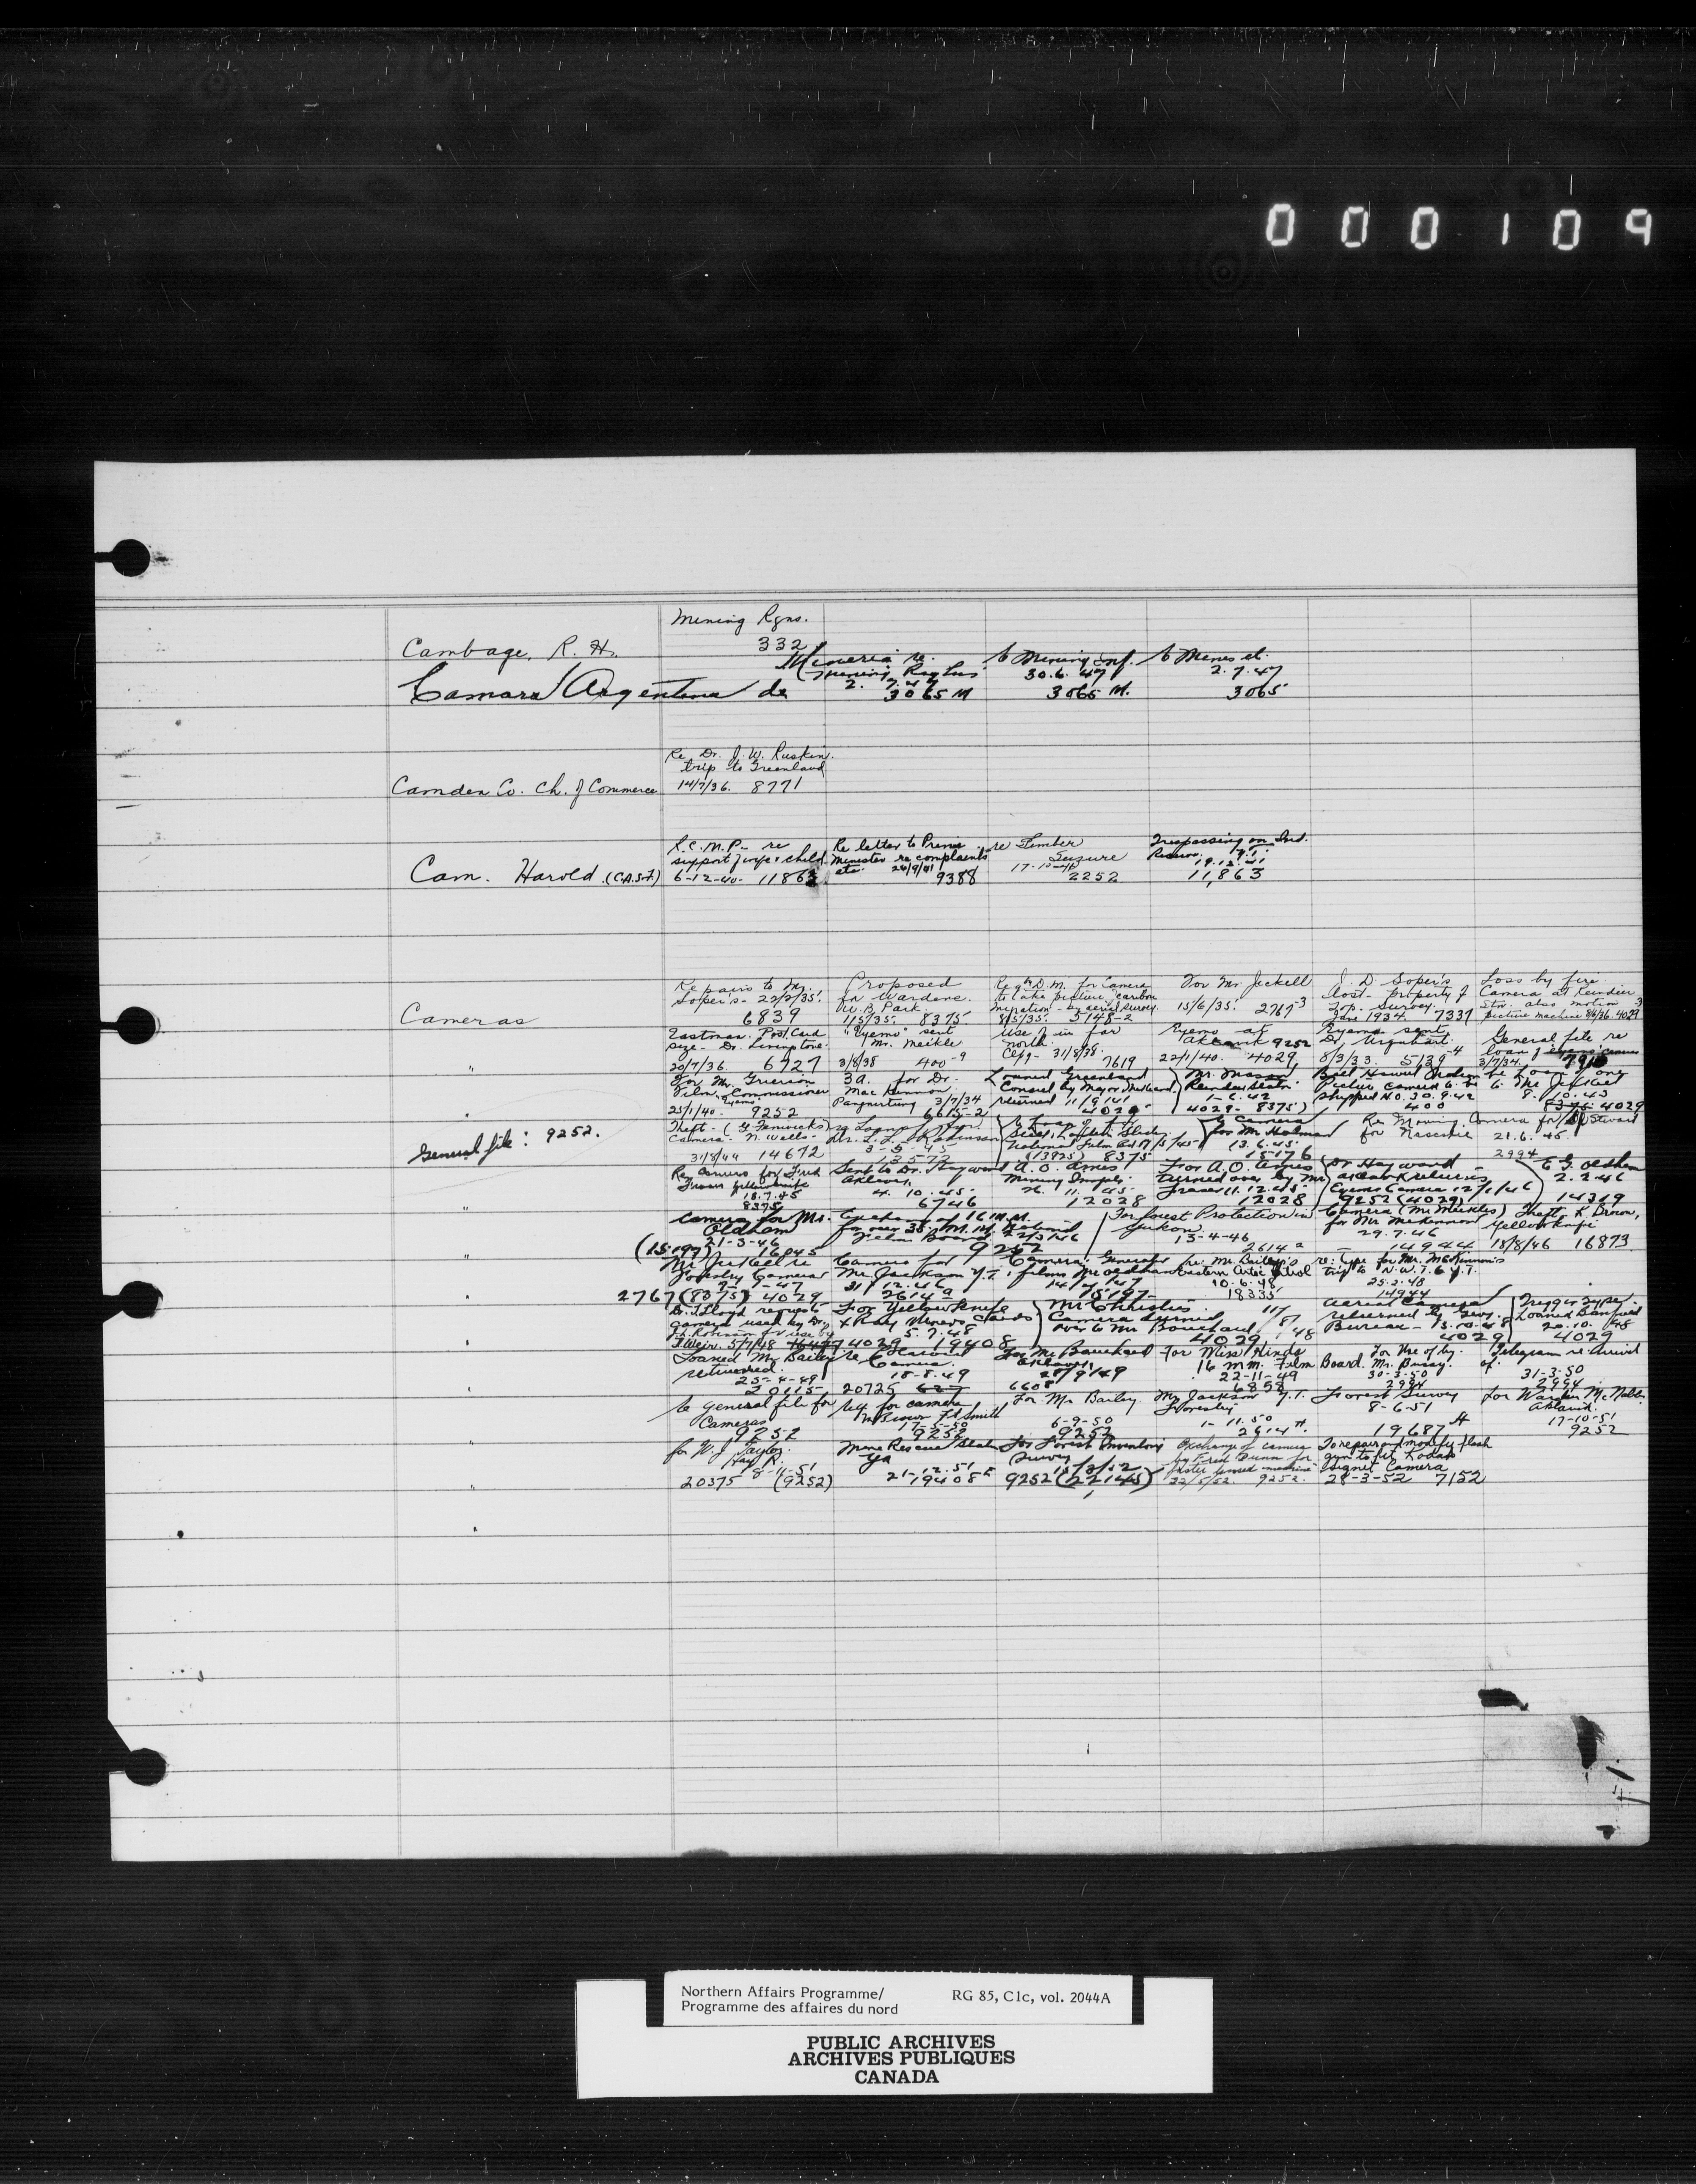 000109
Mining Rgns.
Cambage, R. H. 332
Mineria re. to Mining Inf. to Mines et.
Mining Reg 30.6.47 2.7.47
Camara Argentina de 2. 7.47 3065 M 3065 M. 3065
Re Dr. J. W. Ruskin
trip to Greenland
Camden Co. Ch. of Commerce 14/7/36. 8771
R.C.M.P. re Re letter to Prime re Timber Trespassing on Ind.
support of wife & child Minister re complaints Seizure
etc. 17-10-41
Cam. Harold (C.A.S.F.) 6-12-40- 11863 9388 2252 11,863
Repairs to Mr. Proposed Req. D.M. for Camera For Mr Jeckell J. D Soper's Loss by fire
Soper's- for Wardens. to take picture caribou lost- property of Camera at Reindeer
W. B. Park. migration - aerial survey 15/6/35. 2767-3 Top. Survey. Stn. also motion
Cameras 6839 1/5/35. 8375. 8/5/35. 5748-2 June 1934. 7331 picture machine 8/6/36. 4029
Eastman Post Card "Eyemo" sent Use of in far Eyemo at Eyemo sent General file re
size- Dr. Livingstone- Mr. Meikle north. Aklavik 9252 Dr. Urquhart. loan of
" 20/7/36. 6727 3/8/38 400-9 31/8/38. 7619 22/1/40. 4029 8/3/33. 5139-4 3/7/34.
For Mr. Grierson 3a. for Dr. Loaned Greenland Mr. Mason Bell Howell
Film Commissioner Mac Kinnon Consul by Major Reindeer Statn. Picture Camera
Eyemo. Pangnirtung 3/7/34 returned 11/9/41 1-6.42 shipped H.O. 30.9.42 8./10.43
25/1/40- 9252 6615-2 4029 4029- 8375) 400 8375 4029
Theft- (G. Fenwicks) Camera Re Moving Camera for Steward
General file: 9252. Camera- N. Wells- for Mr Hodman for 21.6.45
31/8/44 14672 3-5-45 13572 (13925) 8375 13.6.45. 15176 2994
Re Camera for Fred Sent to Dr. Hayward A. O. Ames For A. O. Ames Dr Hayward
Fraser Aklavik Mining turned over by Mr Aklavik returning 2.2.46
18.7.45 4. 10.45. 26. 11. 45. Fraser 11.12.45 Eyemo Camera 12/1/46
8375 6746 12028 12028 9252 (4029) 14319
Camera for Mr. 16 M.M. For Forest Protection in Camera (Mr Meikles) Theft- K. Brown,
Oldham for 35 M.M. National Yukon for Mr McKinnon Yellowknife
21-3-46 Film Board 22/3/46 13-4-46 29.7.46
(15197) 16045 9252 2614 14944 18/8/46 16873
Mr Jeckell re Camera for Camera, Generator for Mr. Bailey's re: type for Mr. McKinnon's
Forestry Camera Mr Jackson Y.T. films Mr Oldham Eastern Arctic Patrol trip to N.W.T. & Y.T.
9-1-47 31/12.46 14/4/47 10-6.48 25.2.48
2767 (8375) 4029 2614 15197 18335 14944
Dr. T. Lloyd request For Yellowknife Mr Christie's Aerial Camera Trigger type
Camera used by Dr. X Ray Camera turned returned by Loaned Banfield
Robinson for use by 5.7.48 over to Mr Bouchard Bureau- 13-10-48 20.10. 48
J Weir. 5/7/48 4029 19408 4029 4029 4029
Loaned Mr. Bailey For Mr Bouchard For Miss Hinds For Use of by. Telegram re arrival
returned. Camera. Aklavik 16 mm. Film Board. Mr. Bussy. of.
25-4-49 18-8.49 28/9/49 22-11-49 30-3-50 31-3-50
20115 20725 6608 6858 2994 2994
to General file for Req. for camera For Mr Bailey Mr. Jackson Y.T. Forest Survey for Warden McNabb
Cameras Mr Brown Ft Smith Forestry 8-6-51 Aklavik.
17-5-50 6-9-50 1- 11.50 17-10-51
9252 9252 9252 2614 19687 9252
for W. J Taylor. Mine Rescue Station for Forest Inventory Exchange of camera To repair and modify flash
Hay R. Survey by Fred Dunn for gun to fit Kodak
8-11-51 21-12.51 Signet Camera
" 20575 (9252) 19408 9252 (22145) 9252. 28-3-52 7152
Northern Affairs Programme/ RG 85, C1c, vol. 2044A
Programme des affaires du nord
PUBLIC ARCHIVES
ARCHIVES PUBLIQUES
CANADA